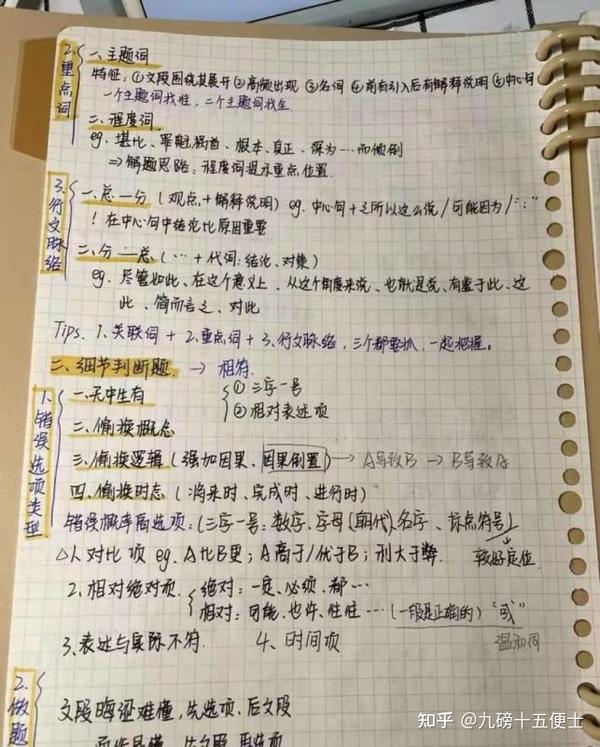 2.重点词
一、主题词
特征：①文段围绕其展开②高频出现 ③名词 ④前有引入后有解释说明⑤中心句
一个主题词找准，二个主题词找全
二、程度词
eg. 堪比、罪魁祸首、根本、真正、深为…而倾倒
⇒解题思路：程度词提示重点位置
3.行文脉络
一、总一分（观点+解释说明）eg. 中心句+之所以这么说/可能因为/"："
！在中心句中结论比原因重要
二、分一总（…+代词：结论、对策）
eg. 尽管如此、在这个意义上、从这个角度来说、也就是说、有鉴于此、这
此、简而言之、对此
Tips. 1.关联词+2.重点词+3.行文脉络，三个都要抓，一起把握。
二、细节判断题 → 相符
1.错误选项类型
一、无中生有
①三字一号
②相对表述项
二、偷换概念
三、偷换逻辑（强加因果、因果倒置）→ A导致B → B导致A
四、偷换时态（将来时、完成时、进行时）
错误概率高选项：（三字一号：数字、字母（朝代）、名字、标点符号）
较好定位
△1.对比项 eg. A比B更；A高于/优于B；利大于弊.
2.相对绝对项. 绝对：一定、必须、都…
相对：可能、也许、往往…（一般是正确的）"或"
温和词
3、表述与实际不符. 4、时间项
2.做题
文段晦涩难懂，先选项、后文段
知乎 @九磅十五便士